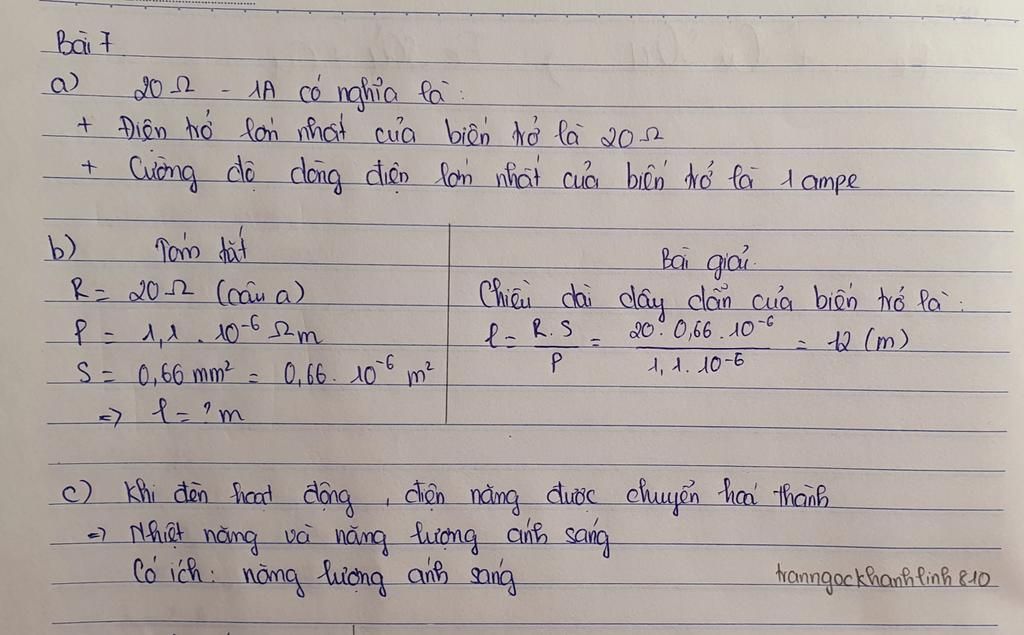 Bài 7
a) 20Ω - 1A có nghĩa là:
+ Điện trở lớn nhất của biến trở là 20Ω
+ Cường độ dòng điện lớn nhất của biến trở là 1 ampe
b) Tóm tắt
R = 20Ω (câu a)
ρ = 1,1 . 10⁻⁶ Ωm
S = 0,66 mm² = 0,66 . 10⁻⁶ m²
=> l = ? m
Bài giải.
Chiều dài dây dẫn của biến trở là:
l = R.S / ρ = 20 . 0,66 . 10⁻⁶ / 1,1 . 10⁻⁶ = 12 (m)
c) Khi đèn hoạt động, điện năng được chuyển hoá thành
=> Nhiệt năng và năng lượng ánh sáng
Có ích: năng lượng ánh sáng
tranngockhanhlinh810